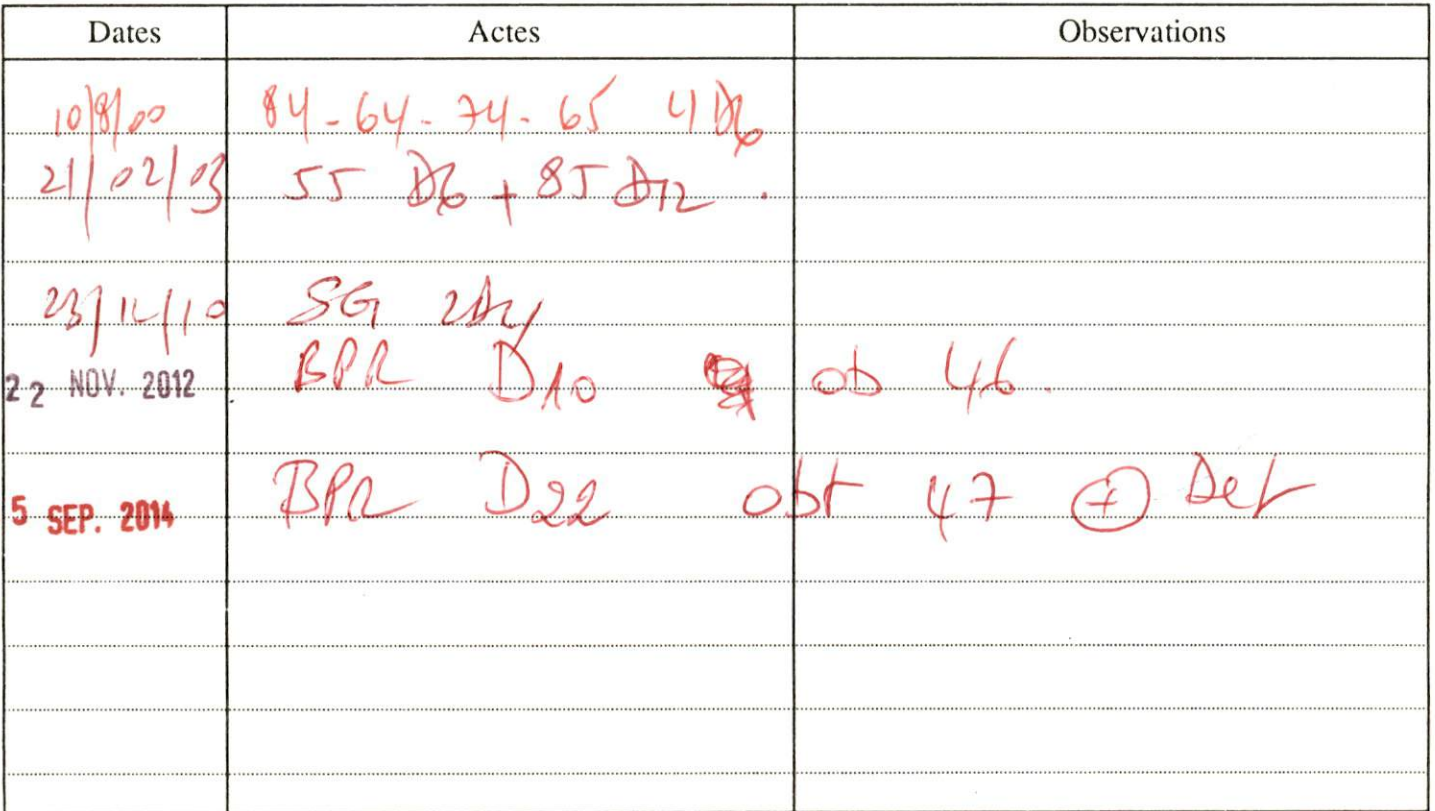 Dates Actes Observations
10/8/00 84-64-74-65 4D6
21/02/03 55 D6 + 85 D12.
23/12/10 SG 2D4
22 NOV. 2012 BPR D10 ob 46.
5 SEP. 2014 BPR D22 obt 47 + Det